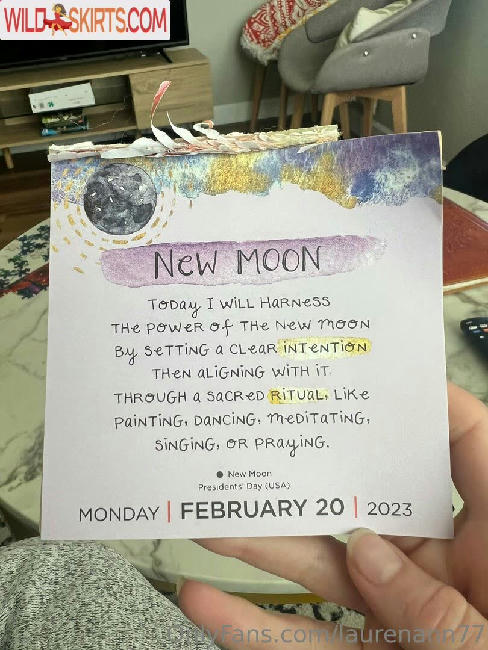 WILDSKIRTS.COM
NEW MOON
TODAY I WILL HARNESS
THE POWER OF THE NEW MOON
BY SETTING A CLEAR INTENTION
THEN ALIGNING WITH IT
THROUGH A SACRED RITUAL, LIKE
PAINTING, DANCING, MEDITATING,
SINGING, OR PRAYING.
● New Moon
Presidents' Day (USA)
MONDAY | FEBRUARY 20 | 2023
OnlyFans.com/laurenann77